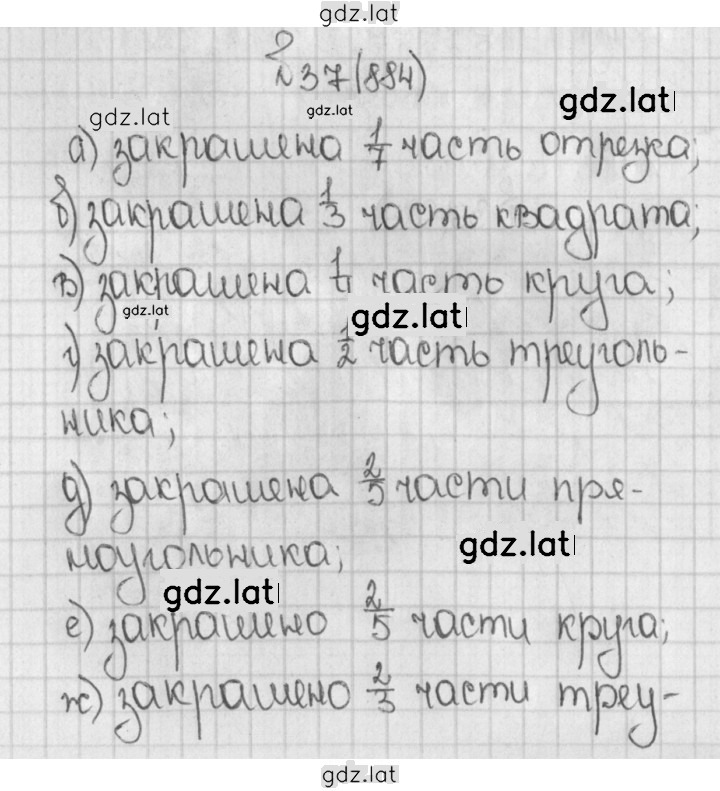 gdz.lat
№ 37 (884)
gdz.lat
gdz.lat
gdz.lat
а) закрашена 1/7 часть отрезка;
б) закрашена 1/3 часть квадрата;
в) закрашена часть круга;
gdz.lat
gdz.lat
г) закрашена 1/2 часть треуголь-
ника;
д) закрашена 2/5 части пря-
моугольника;
gdz.lat
gdz.lat
е) закрашено 2/5 части круга;
ж) закрашено 2/3 части треу-
gdz.lat